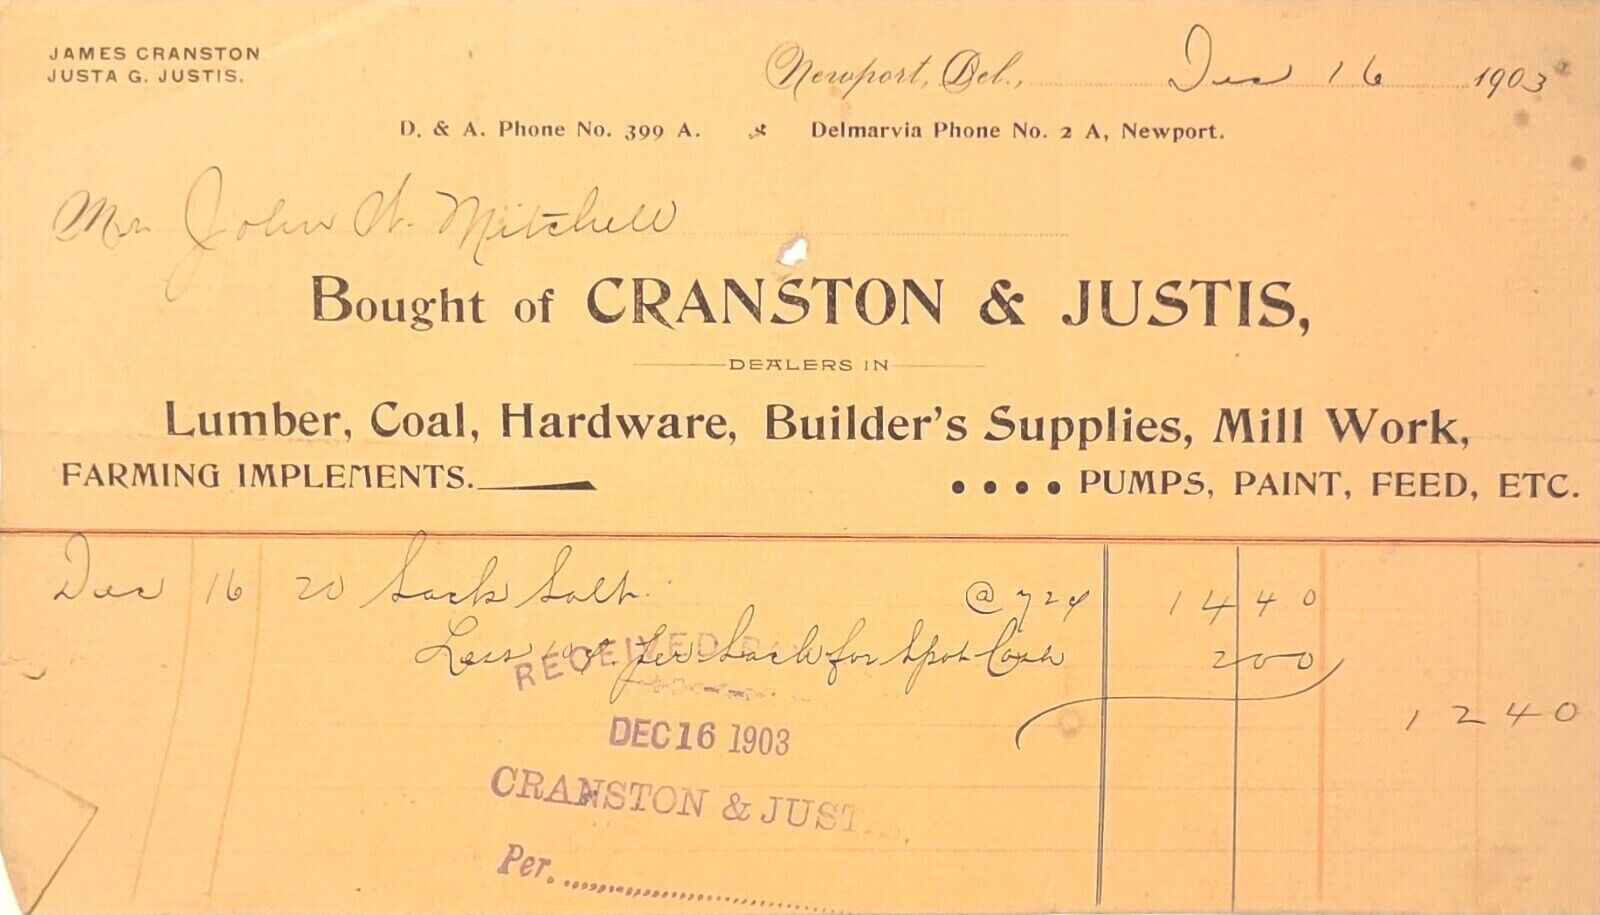 JAMES CRANSTON
JUSTA G. JUSTIS.
Newport, Del., Dec 16 1903
D. & A. Phone No. 399 A. Delmarvia Phone No. 2 A, Newport.
Mr John W. Mitchell
Bought of CRANSTON & JUSTIS,
DEALERS IN
Lumber, Coal, Hardware, Builder's Supplies, Mill Work,
FARMING IMPLEMENTS. .... PUMPS, PAINT, FEED, ETC.
Dec 16 20 Sack Salt. @ 72¢ 14 40
Less 10¢ per Sack for Spot Cash 2 00
12 40
RECEIVED
DEC 16 1903
CRANSTON & JUST
Per.